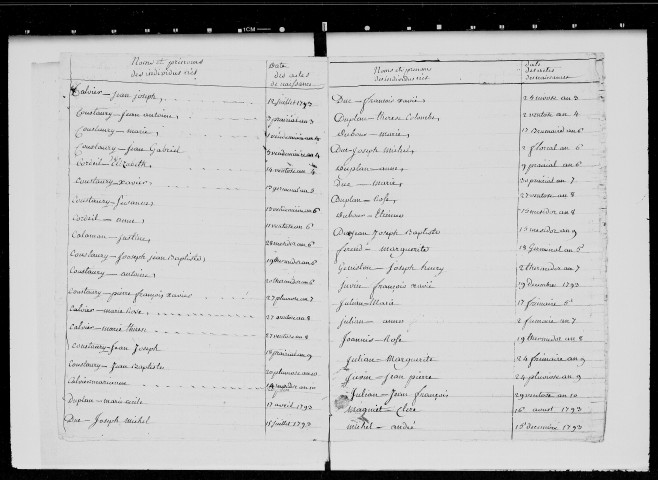 1CM
Noms et prenoms
des individus nés
Date
des actes
de naissance
Calvier - jean joseph, 12 juillet 1793
Constaury - jean antoine, 3 prairial an 3
Constaury - marie, 1 vendemiaire an 4
Constaury - jean Gabriel 3 vendemiaire an 4
Cordeil - Elizabeth, 14 ventose an 4
Constaury - xavier 13 germinal an 5
Constaury - Susanne, 13 vendemiaire an 6
Cordeil - anne, 11 ventose an 6
Calaman - justine, 28 messidor an 6
Constaury - Joseph jean Baptiste, 19 thermidor an 6
Constaury - antoine, 20 thermidor an 6
Constaury - pierre françois xavier 27 pluviose an 7
Calvier - marie Rose, 27 ventose an 8
Calvier - marie therese 27 ventose an 8
Constaury - Jean Joseph 18 prairial an 9
Constaury - Jean Baptiste 20 pluviose an 10
Calvier 14 messidor an 10
Duplan - marie 17 avril 1793
Duc - Joseph michel 15 juillet 1793
Noms et prenoms
des individus nés
Date
des actes
de naissances
Duc - françois xavier 24 nivose an 3
Duplan - therese Colombe, 2 ventose an 4
Dubous - marie, 17 Brumaire an 6
Duc Joseph michel 2 floreal an 6
Duplan - anne, 9 prairial an 6
Duc - Marie 30 prairial an 7
Duplan - Rose, 27 ventose an 8
Dubous - Etienne 13 messidor an 8
jean Joseph Baptiste 15 messidor an 9
feraud - marguerite 18 Germinal an 5
Joseph henry 2 thermidor an 7
Juvin - françois xavier 19 décembre 1793
Julien - Marie 17 frimaire
Julian - anne 2 frimaire an 7
Joannis - Rose 19 thermidor an 8
Julian - Marguerite 24 frimaire an 9
Juvin - jean pierre 24 pluviose an 9
Julian - Jean françois 29 ventose an 10
Maquet - Clere 16 aoust 1793
Michel - andré 15 decembre 1793